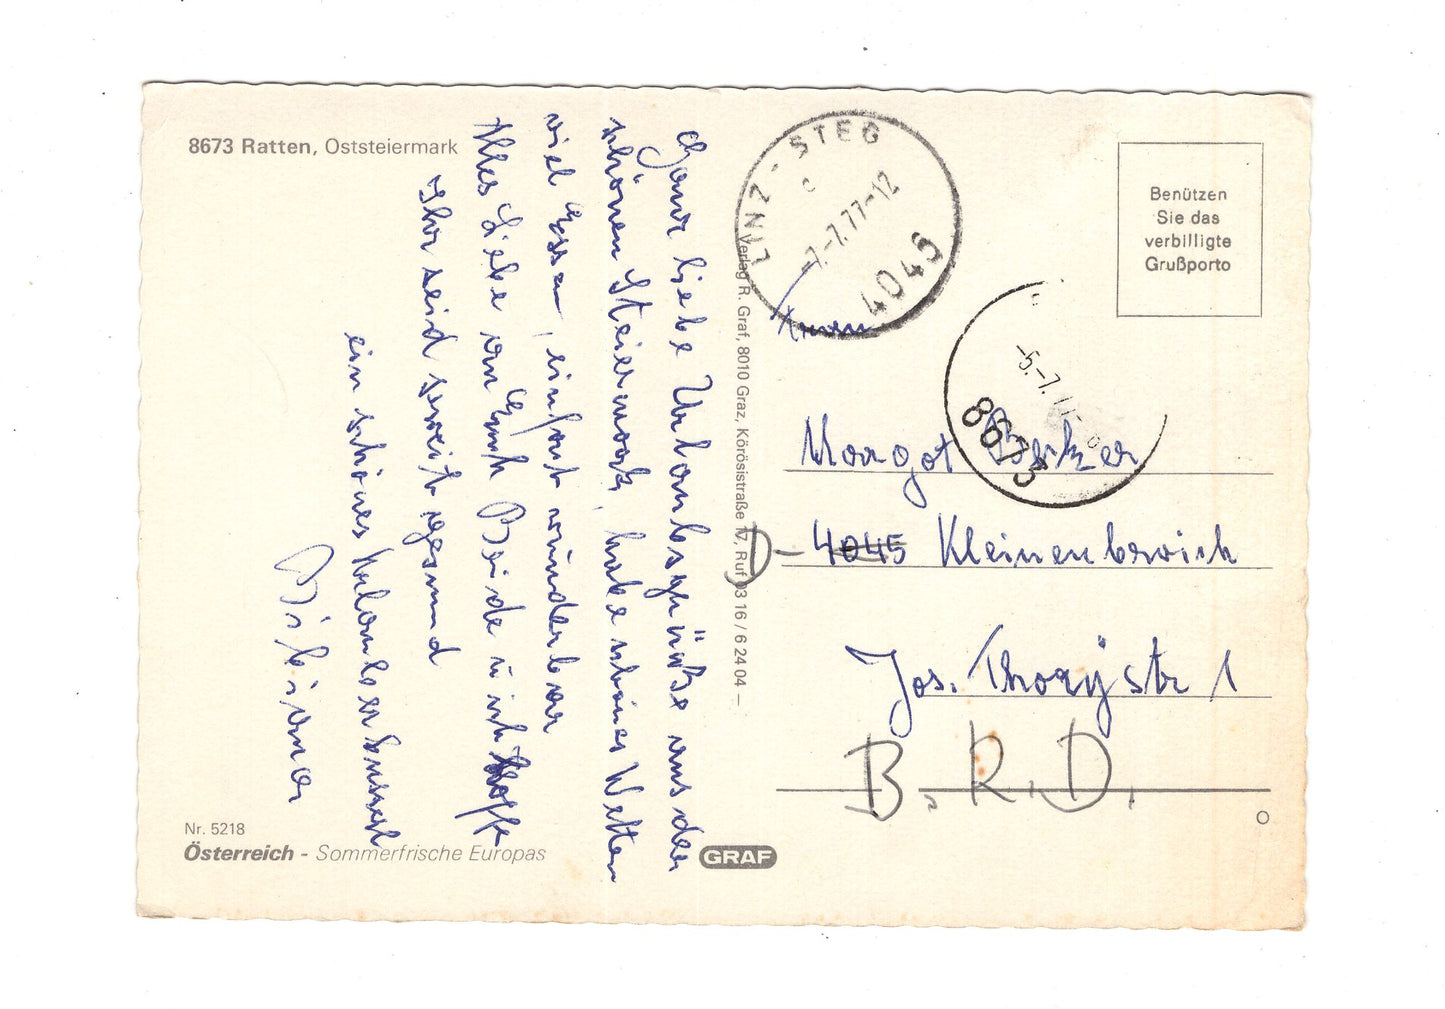 8673 Ratten, Oststeiermark
Ganz liebe Urlaubsgrüße aus der
schönen Steiermark, habe schönes Wetter
viel Essen, einfach wunderbar
Alles Liebe an Euch Beide u ich hoffe
Ihr seid soweit gesund
ein schönes
Nr. 5218
Österreich - Sommerfrische Europas
GRAF
Verlag R. Graf, 8010 Graz, Körösistraße 17, Ruf 03 16 / 6 24 04 –
LINZ-STEG
c
-7.-7.77-12
4045
Benützen
Sie das
verbilligte
Grußporto
-5.-7.
8673
Margot Becker
D- 4045 Kleinenbroich
Jos. Thorystr 1
B.R.D.